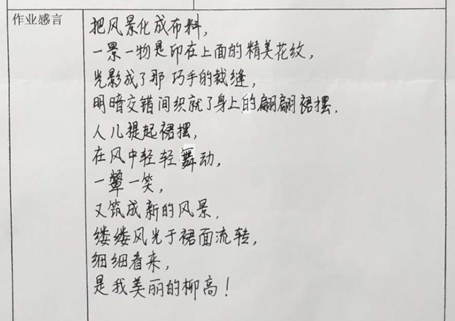 作业感言
把风景化成布料,
一景一物是印在上面的精美花纹,
光影成了那巧手的裁缝,
明暗交错间织就了身上的翩翩裙摆.
人儿提起裙摆,
在风中轻轻舞动,
一颦一笑,
又筑成新的风景.
缕缕风光于裙面流转,
细细看来,
是我美丽的柳高!